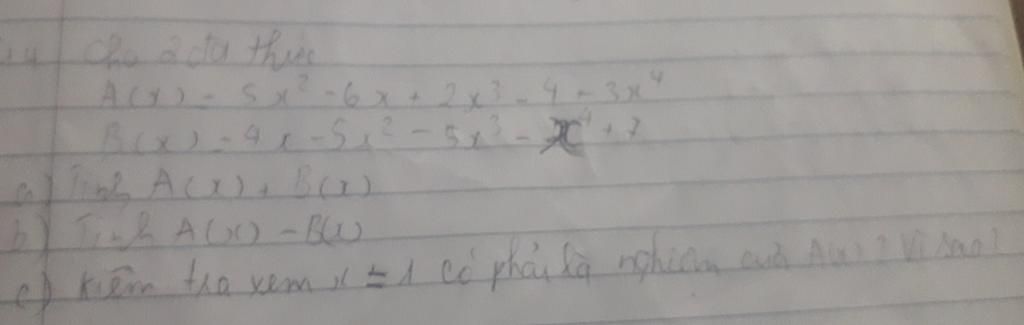 Cho 2 đa thức
A(x) = 5x² - 6x + 2x³ - 4 - 3x⁴
B(x) = 4x - 5x² - 5x³ - x⁴ + 7
a) Tính A(x) + B(x)
b) Tính A(x) - B(x)
c) Kiểm tra xem x = 1 có phải là nghiệm của A(x)? Vì sao?